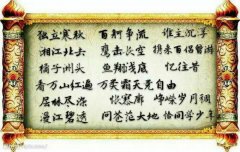 独立寒秋 百舸争流 谁主沉浮
湘江北去 鹰击长空 携来百侣曾游
橘子洲头 鱼翔浅底 忆往昔
看万山红遍 万类霜天竞自由
层林尽染 怅寥廓 峥嵘岁月稠
漫江碧透 问苍茫大地 恰同学少年